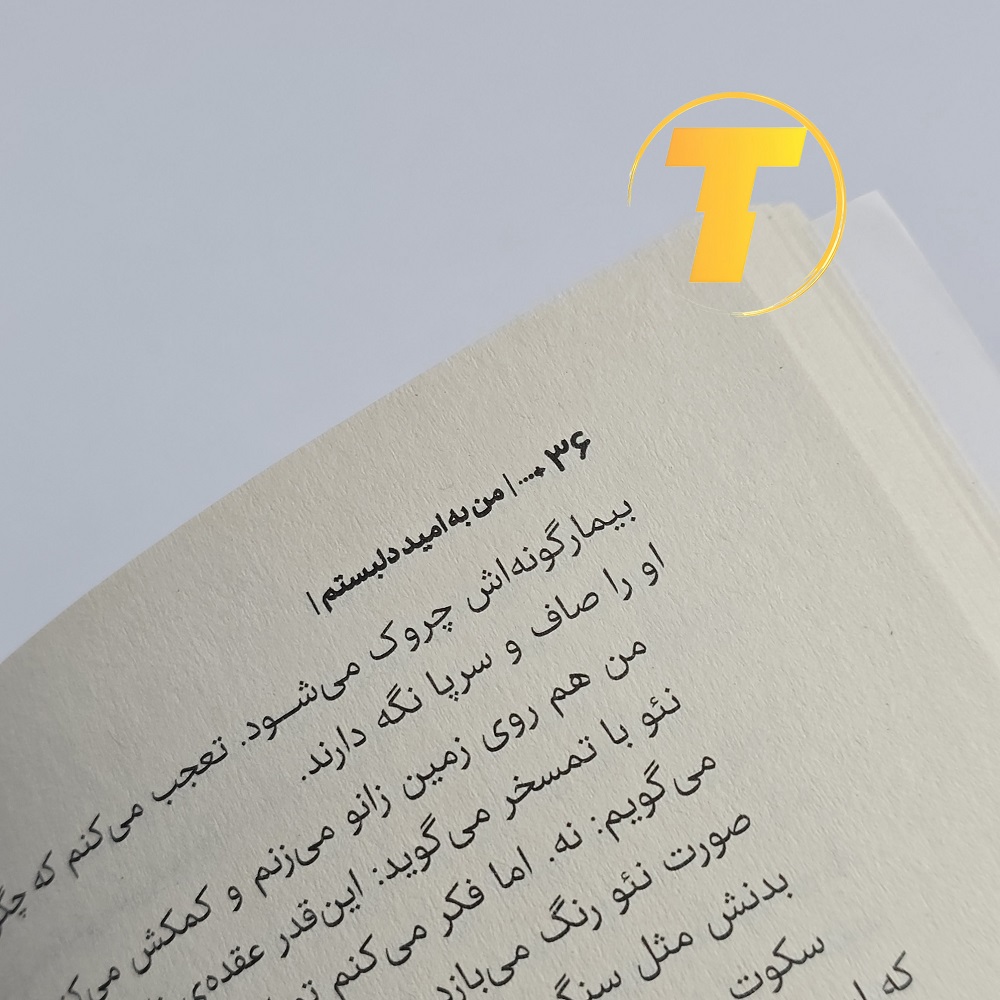 T
۳۶ ... | من به امید دلبستم |
بیمارگونه‌اش چروک می‌شود. تعجب می‌کنم که
او را صاف و سرپا نگه دارند.
من هم روی زمین زانو می‌زنم و کمکش
نئو با تمسخر می‌گوید: این‌قدر عقده‌ی
می‌گویم: نه. اما فکر می‌کنم
صورت نئو رنگ می‌بازد
بدنش مثل
سکوت
که